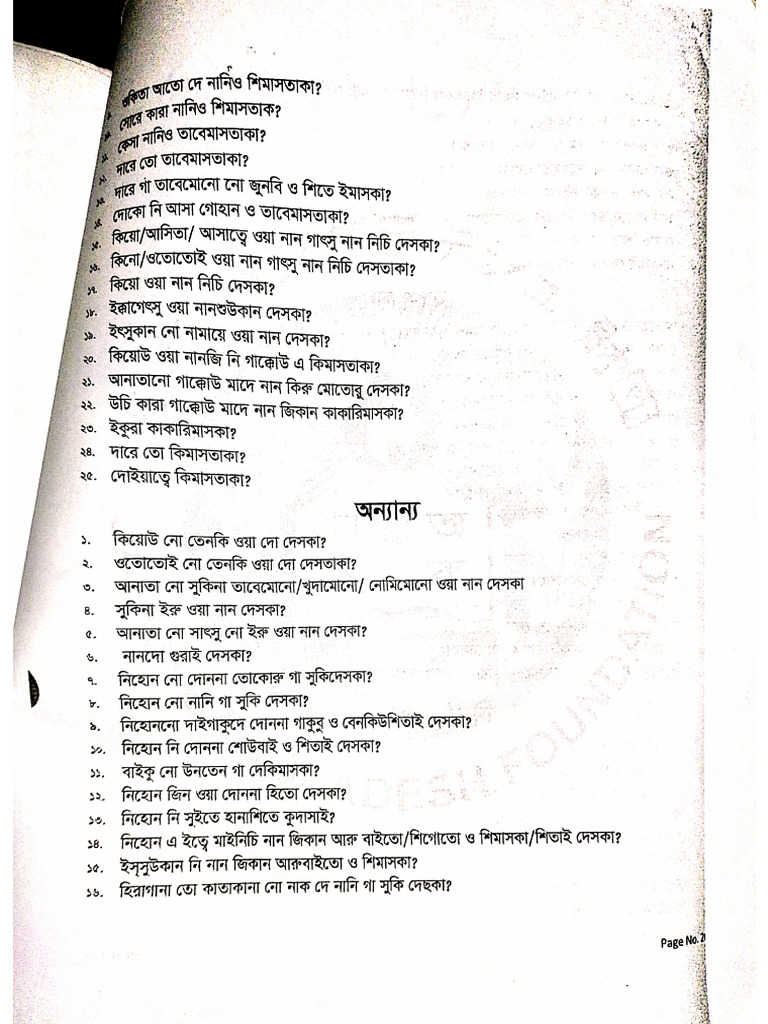 ওকিতা আতো দে নানিও শিমাসতাকা?
সোরে কারা নানিও শিমাসতাক?
কেসা নানিও তাবেমাসতাকা?
দারে তো তাবেমাসতাকা?
দারে গা তাবেমোনো নো জুনবি ও শিতে ইমাসকা?
দোকো নি আসা গোহান ও তাবেমাসতাকা?
১৫. কিয়ো/আসিতা/ আসাত্বে ওয়া নান গাৎসু নান নিচি দেসকা?
১৬. কিনো/ওতোতোই ওয়া নান গাৎসু নান নিচি দেসতাকা?
১৭. কিয়ো ওয়া নান নিচি দেসকা?
১৮. ইক্কাগেৎসু ওয়া নানশুউকান দেসকা?
১৯. ইৎসুকান নো নামায়ে ওয়া নান দেসকা?
২০. কিয়োউ ওয়া নানজি নি গাক্কোউ এ কিমাসতাকা?
২১. আনাতানো গাক্কোউ মাদে নান কিরু মোতোরু দেসকা?
২২. উচি কারা গাক্কোউ মাদে নান জিকান কাকারিমাসকা?
২৩. ইকুরা কাকারিমাসকা?
২৪. দারে তো কিমাসতাকা?
২৫. দোইয়াত্বে কিমাসতাকা?
অন্যান্য
১. কিয়োউ নো তেনকি ওয়া দো দেসকা?
২. ওতোতোই নো তেনকি ওয়া দো দেসতাকা?
৩. আনাতা নো সুকিনা তাবেমোনো/খুদামোনো/ নোমিমোনো ওয়া নান দেসকা
৪. সুকিনা ইরু ওয়া নান দেসকা?
৫. আনাতা নো সাৎসু নো ইরু ওয়া নান দেসকা?
৬. নানদো গুরাই দেসকা?
৭. নিহোন নো দোননা তোকোরু গা সুকিদেসকা?
৮. নিহোন নো নানি গা সুকি দেসকা?
৯. নিহোননো দাইগাকুদে দোননা গাকুবু ও বেনকিউশিতাই দেসকা?
১০. নিহোন নি দোননা শোউবাই ও শিতাই দেসকা?
১১. বাইকু নো উনতেন গা দেকিমাসকা?
১২. নিহোন জিন ওয়া দোননা হিতো দেসকা?
১৩. নিহোন নি সুইতে হানাশিতে কুদাসাই?
১৪. নিহোন এ ইত্বে মাইনিচি নান জিকান আরু বাইতো/শিগোতো ও শিমাসকা/শিতাই দেসকা?
১৫. ইস্সুউকান নি নান জিকান আরুবাইতো ও শিমাসকা?
১৬. হিরাগানা তো কাতাকানা নো নাক দে নানি গা সুকি দেছকা?
DESH FOUNDATION
Page No.